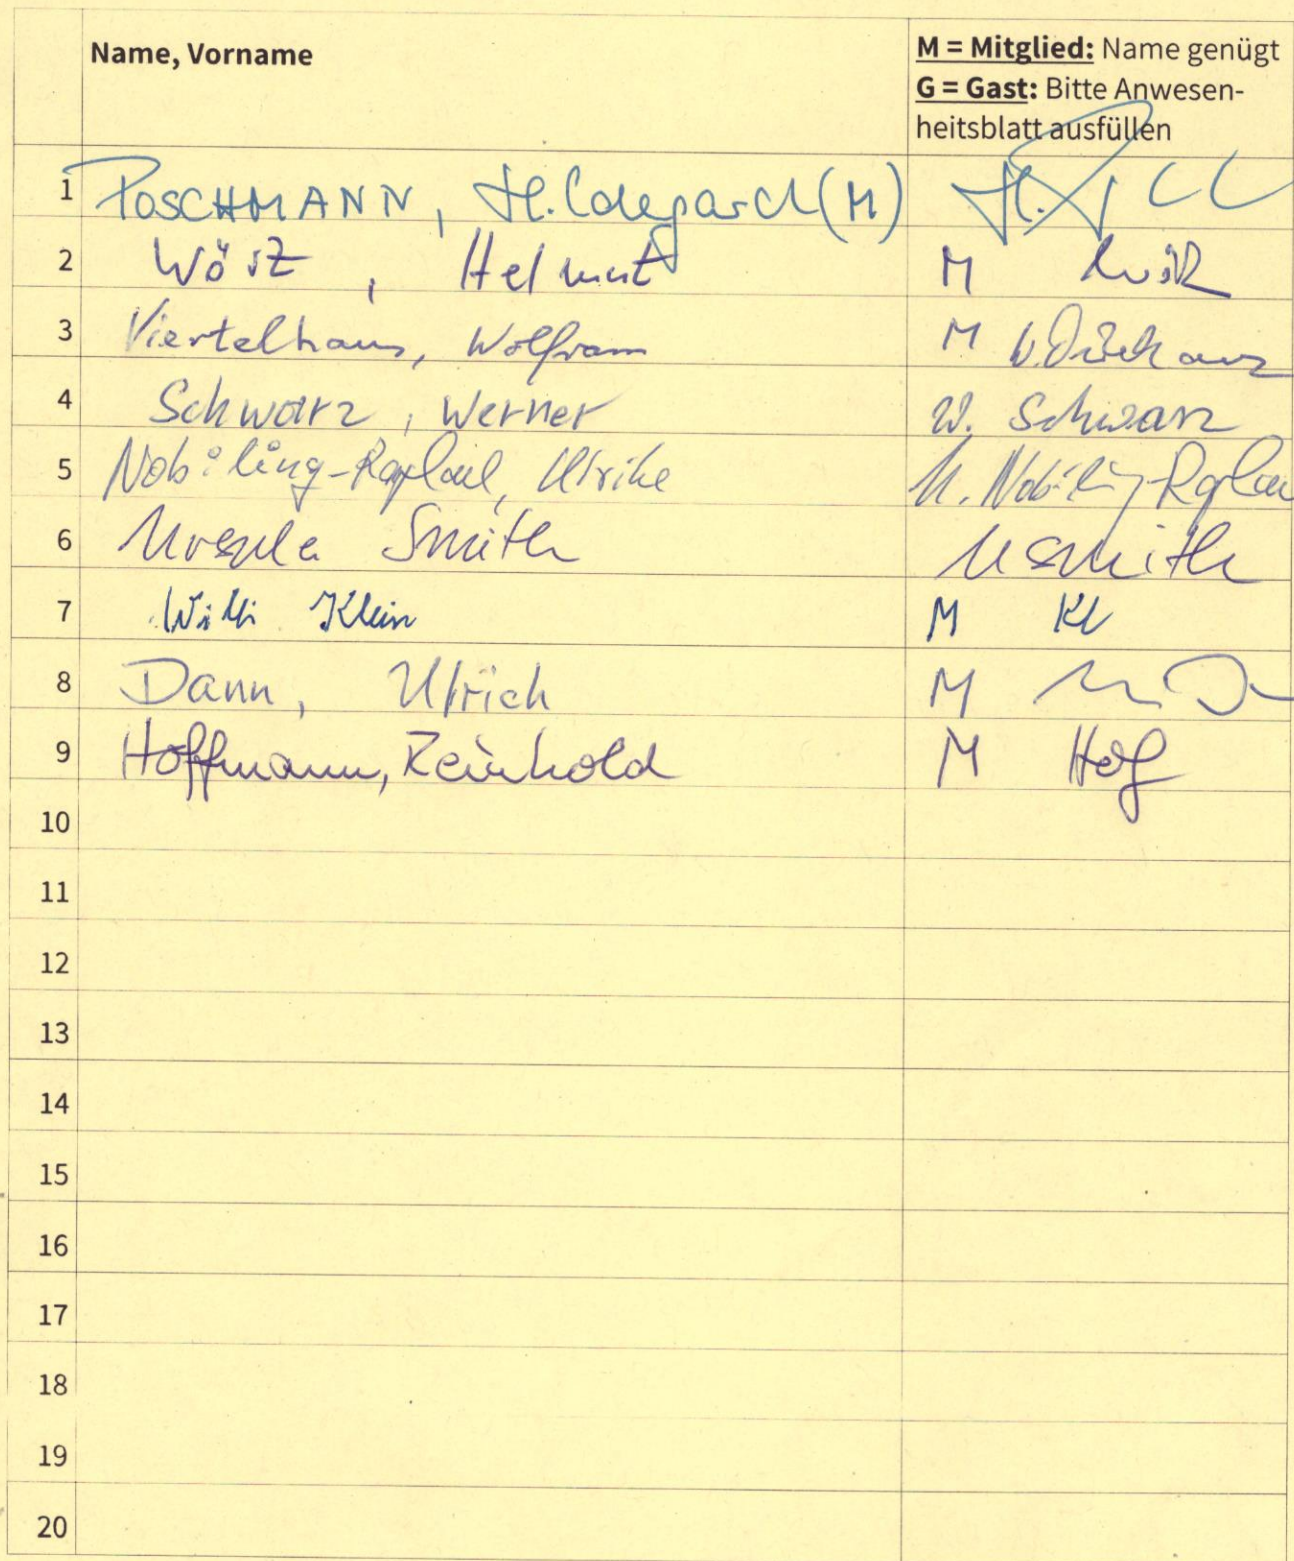 Name, Vorname
M = Mitglied: Name genügt
G = Gast: Bitte Anwesen-
heitsblatt ausfüllen
1 POSCHMANN, Hildegard (M) H.
2 Helmut M
3 Viertelhaus, Wolfram M W.
4 Schwarz, Werner W. Schwarz
5 Nobiling-Raphael, Ulrike U. Nobiling-
6 Ursula Smith U Smith
7 Willi Klein M Kl
8 Dann, Ulrich M
9 Hoffmann, Reinhold M Hof
10
11
12
13
14
15
16
17
18
19
20